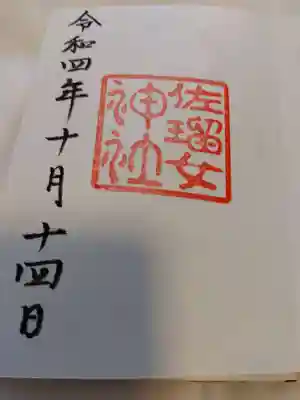 佐瑠女
神社
令和四年十月十四日